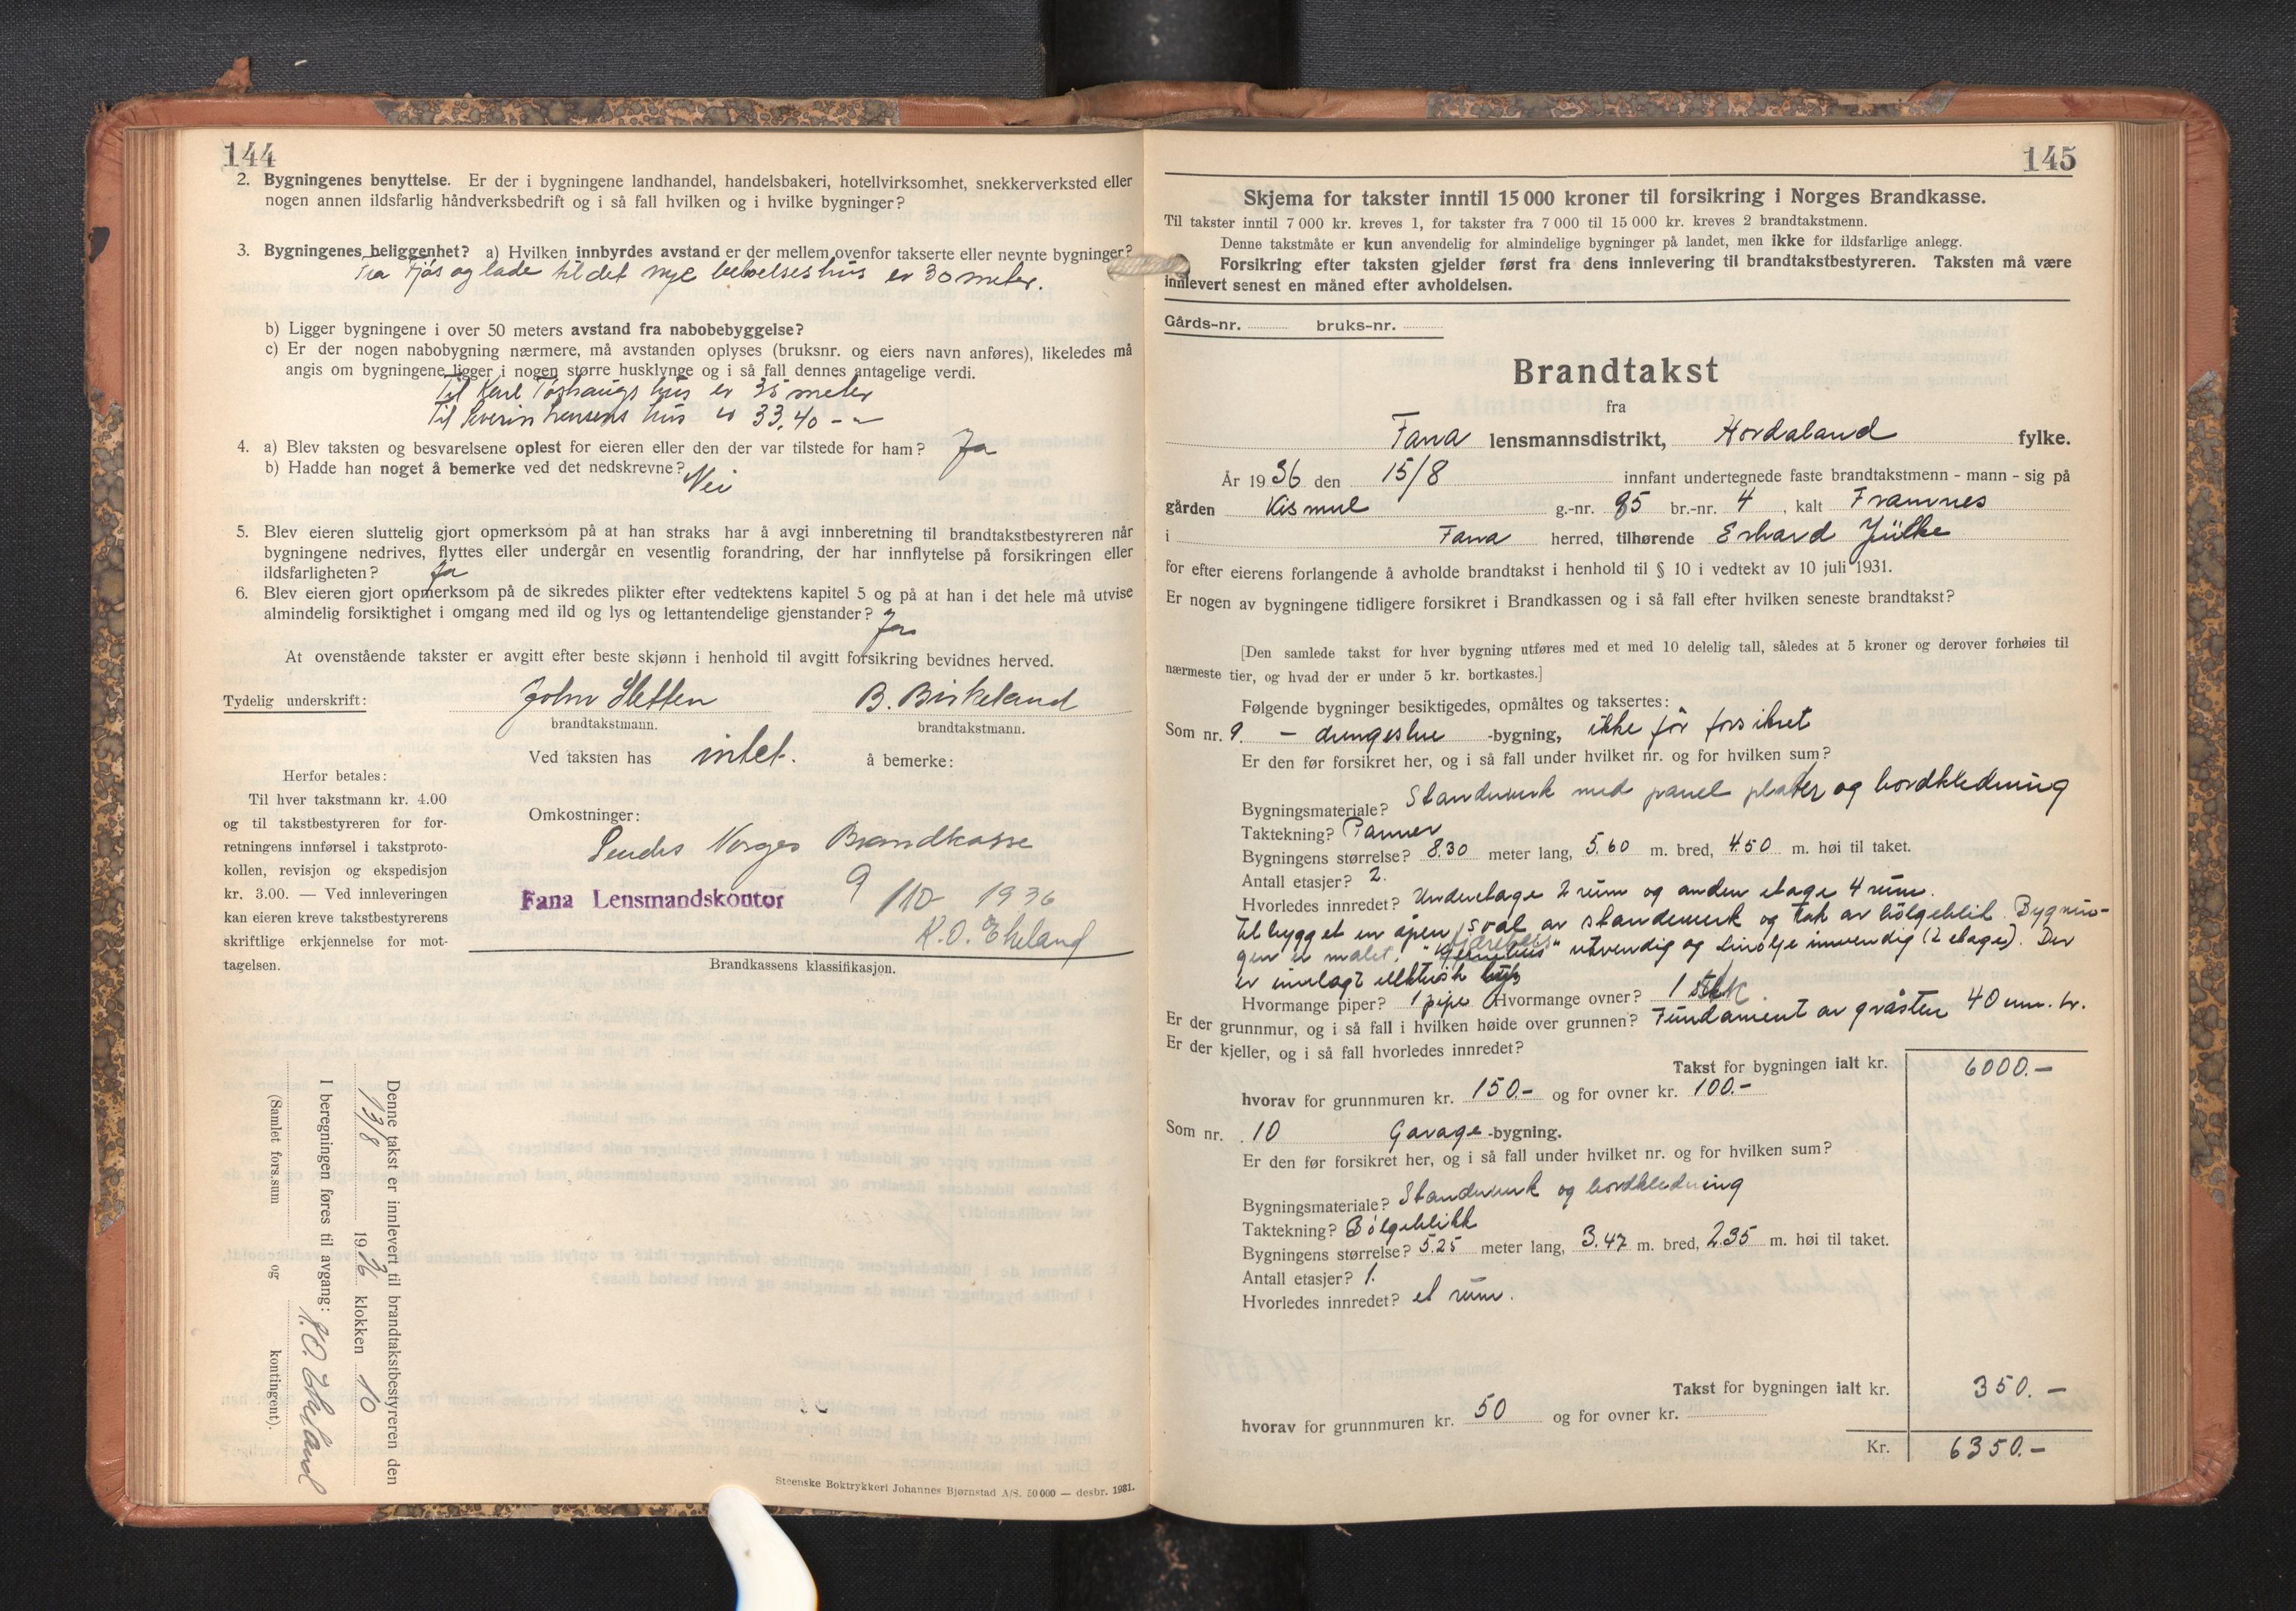 144
2. Bygningenes benyttelse. Er der i bygningene landhandel, handelsbakeri, hotellvirksomhet, snekkerverksted eller
nogen annen ildsfarlig håndverksbedrift og i så fall hvilken og i hvilke bygninger?
3. Bygningenes beliggenhet? a) Hvilken innbyrdes avstand er der mellem ovenfor takserte eller nevnte bygninger?
Fra Fjøs og lade til det nye beboelseshus er 30 meter.
b) Ligger bygningene i over 50 meters avstand fra nabobebyggelse?
c) Er der nogen nabobygning nærmere, må avstanden oplyses (bruksnr. og eiers navn anføres), likeledes må
angis om bygningene ligger i nogen større husklynge og i så fall dennes antagelige verdi.
Til Karl hus er 35 meter
Til Severin hus " 33,40 - "
4. a) Blev taksten og besvarelsene oplest for eieren eller den der var tilstede for ham? Ja
b) Hadde han noget å bemerke ved det nedskrevne? Nei
5. Blev eieren sluttelig gjort opmerksom på at han straks har å avgi innberetning til brandtakstbestyreren når
bygningene nedrives, flyttes eller undergår en vesentlig forandring, der har innflytelse på forsikringen eller
ildsfarligheten? Ja
6. Blev eieren gjort opmerksom på de sikredes plikter efter vedtektens kapitel 5 og på at han i det hele må utvise
almindelig forsiktighet i omgang med ild og lys og lettantendelige gjenstander? Ja
At ovenstående takster er avgitt efter beste skjønn i henhold til avgitt forsikring bevidnes herved.
Tydelig underskrift: John Sletten B. Birkeland
brandtakstmann. brandtakstmann.
Ved taksten has intet. å bemerke:
Herfor betales:
Til hver takstmann kr. 4.00
og til takstbestyreren for for-
retningens innførsel i takstproto-
kollen, revisjon og ekspedisjon
kr. 3.00. — Ved innleveringen
kan eieren kreve takstbestyrerens
skriftlige erkjennelse for mot-
tagelsen.
Omkostninger:
Sendes Norges Brandkasse
Fana Lensmandskontor 9/10 1936
K. O. Ekeland
Brandkassens klassifikasjon.
Denne takst er innlevert til brandtakstbestyreren den
1936 klokken 10
I beregningen føres til avgang: K. O. Ekeland
(Samlet fors.sum og kontingent).
Steenske Boktrykkeri Johannes Bjørnstad A/S. 50 000 — desbr. 1931.
145
Skjema for takster inntil 15 000 kroner til forsikring i Norges Brandkasse.
Til takster inntil 7 000 kr. kreves 1, for takster fra 7 000 til 15 000 kr. kreves 2 brandtakstmenn.
Denne takstmåte er kun anvendelig for almindelige bygninger på landet, men ikke for ildsfarlige anlegg.
Forsikring efter taksten gjelder først fra dens innlevering til brandtakstbestyreren. Taksten må være
innlevert senest en måned efter avholdelsen.
Gårds-nr. bruks-nr.
Brandtakst
fra
Fana lensmannsdistrikt, Hordaland fylke.
År 1936 den 15/8 innfant undertegnede faste brandtakstmenn - mann - sig på
gården Kismul g.-nr. 95 br.-nr. 4, kalt Framnes
i Fana herred, tilhørende Erhard Jülke
for efter eierens forlangende å avholde brandtakst i henhold til § 10 i vedtekt av 10 juli 1931.
Er nogen av bygningene tidligere forsikret i Brandkassen og i så fall efter hvilken seneste brandtakst?
[Den samlede takst for hver bygning utføres med et med 10 delelig tall, således at 5 kroner og derover forhøies til
nærmeste tier, og hvad der er under 5 kr. bortkastes.]
Følgende bygninger besiktigedes, opmåltes og taksertes:
Som nr. 9. - -bygning, ikke før forsikret
Er den før forsikret her, og i så fall under hvilket nr. og for hvilken sum?
Bygningsmateriale? Standverk med panel plater og bordkledning
Taktekning? Panner
Bygningens størrelse? 8.30 meter lang, 5.60 m. bred, 4.50 m. høi til taket.
Antall etasjer? 2.
Hvorledes innredet? Underetage 2 rum og anden etage 4 rum.
tilbygget en åpen sval av standverk og tak av bølgeblik. Bygnin-
gen er malet utvendig og linolje innvendig (2 etage). Der
er innlagt elektrisk lys
Hvormange piper? 1 pipe Hvormange ovner? 1 stk.
Er der grunnmur, og i så fall i hvilken høide over grunnen? Fundament av gråsten 40 mm. hr.
Er der kjeller, og i så fall hvorledes innredet?
Takst for bygningen ialt kr. 6000.-
hvorav for grunnmuren kr. 150.- og for ovner kr. 100.-
Som nr. 10 Garage-bygning.
Er den før forsikret her, og i så fall under hvilket nr. og for hvilken sum?
Bygningsmateriale? Standverk og bordkledning
Taktekning? Bølgeblikk
Bygningens størrelse? 5.25 meter lang, 3.47 m. bred, 2.35 m. høi til taket.
Antall etasjer? 1.
Hvorledes innredet? et rum.
Takst for bygningen ialt kr. 350.-
hvorav for grunnmuren kr. 50 og for ovner kr.
Kr. 6350.-